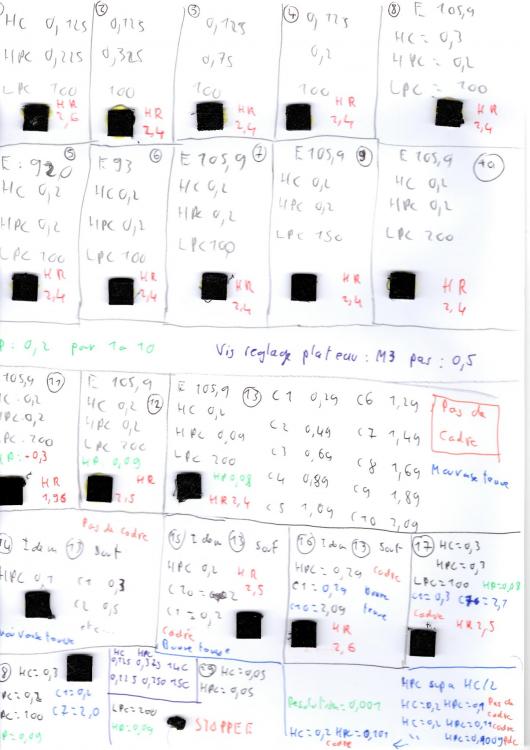 HC 0,125
HPC 0,225
LPC 100
HR
2,6
②
0,125
0,325
100
HR
2,4
③
0,125
0,75
100
HR
2,4
④
0,125
0,2
100
HR
2,4
⑧ E 105,9
HC = 0,3
HPC = 0,2
LPC = 100
HR
2,4
⑤
HC 0,2
HPC 0,2
LPC 100
HR
2,4
E 93 ⑥
HC 0,2
HPC 0,2
LPC 100
HR
2,4
E 105,9 ⑦
HC 0,2
HPC 0,2
LPC 100
HR
2,4
E 105,9 ⑨
HC 0,2
HPC 0,2
LPC 150
HR
2,4
E 105,9 ⑩
HC 0,2
HPC 0,2
LPC 200
HR
2,4
P : 0,2 pour 1 a 10
Vis reglage plateau : M3 pas : 0,5
105,9 ⑪
HC 0,2
HPC 0,2
LPC 200
HP : -0,3
HR
1,96
E 105,9
HC 0,2 ⑫
HPC 0,2
LPC 200
HP 0,09
HR
2,5
E 105,9 ⑬
HC 0,2
HPC 0,09
LPC 200
HP 0,08
HR 2,4
C1 0,29 C6 1,29
C2 0,49 C7 1,49
C3 0,69 C8 1,69
C4 0,89 C9 1,89
C5 1,09 C10 2,09
Pas de
Cadre
Mauvaise
Pas de cadre
14 Idem 13 Sauf
HPC 0,1 C1 0,3
C2 0,5
etc...
15 Idem 13 Sauf
HPC 0,2 HR
2,5
C1 = 0,2
Cadre
Bonne
16 Idem 13 Sauf
HPC = 0,29 Cadre
C1 = 0,29 Bonne
C10 = 2,09
HR
2,6
17 HC = 0,3
HPC = 0,3
LPC = 100 HP = 0,08
C1 = 0,3
Cadre HR 2,5
8 HC = 0,3
HPC = 0,2 C1 = 0,2
LPC = 100 C7 = 2,0
HP = 0,09
HC HPC
0,125 0,325 14C
0,125 0,350 15C
LPC = 200
HP = 0,09
HC = 0,05
HPC = 0,05
STOPPEE
Resolution = 0,001
HC = 0,2 HPC = 0,101
Cadre
HPC supa HC/2
HC = 0,2 HPC = 0,1 Pas de
Cadre
HC = 0,2 HPC = 0,11 Cadre